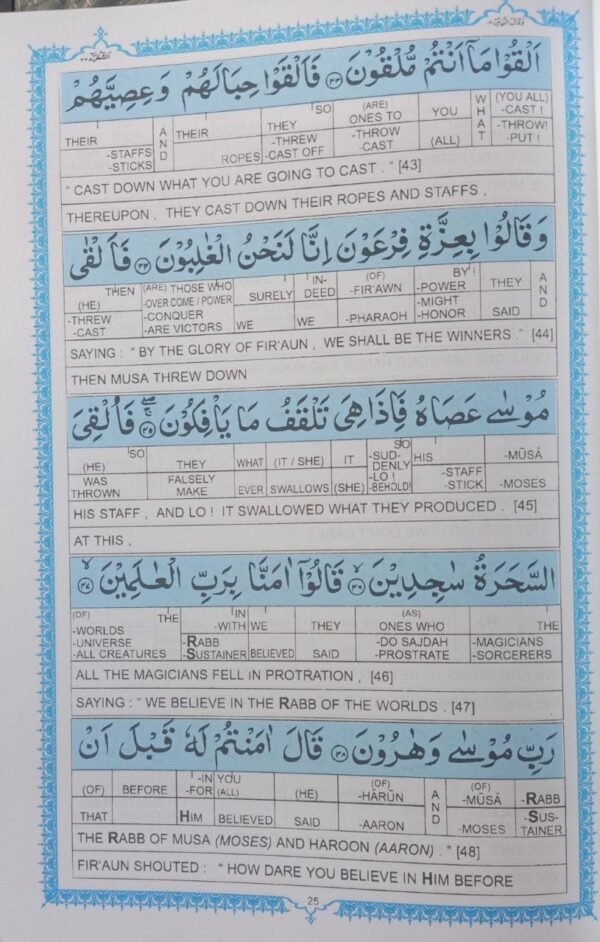 اَلْقُوْا مَاۤ اَنْتُمْ مُّلْقُوْنَ ۴۳ فَاَلْقَوْا حِبَالَهُمْ وَعِصِيَّهُمْ
THEIR -STAFFS -STICKS AND THEIR ROPES SO THEY -THREW -CAST OFF (ARE) ONES TO -THROW -CAST YOU (ALL) WHAT (YOU ALL) -CAST ! -THROW! -PUT !
" CAST DOWN WHAT YOU ARE GOING TO CAST . " [43]
THEREUPON , THEY CAST DOWN THEIR ROPES AND STAFFS ,
وَقَالُوْا بِعِزَّةِ فِرْعَوْنَ اِنَّا لَنَحْنُ الْغٰلِبُوْنَ ۴۴ فَاَلْقٰى
THEN (HE) -THREW -CAST (ARE) THOSE WHO -OVER COME / POWER -CONQUER -ARE VICTORS SURELY WE IN-DEED WE (OF) -FIR'AWN -PHARAOH BY ! -POWER -MIGHT -HONOR THEY SAID AND
SAYING : " BY THE GLORY OF FIR'AUN , WE SHALL BE THE WINNERS ." [44]
THEN MUSA THREW DOWN
مُوْسٰى عَصَاهُ فَاِذَا هِىَ تَلْقَفُ مَا يَاْفِكُوْنَ ۴۵ فَاُلْقِىَ
SO (HE) WAS THROWN THEY FALSELY MAKE WHAT EVER (IT / SHE) SWALLOWS IT (SHE) SO -SUD-DENLY -LO ! -BEHOLD! HIS -STAFF -STICK -MŪSĀ -MOSES
HIS STAFF , AND LO ! IT SWALLOWED WHAT THEY PRODUCED . [45]
AT THIS ,
السَّحَرَةُ سٰجِدِيْنَ ۴۶ قَالُوْۤا اٰمَنَّا بِرَبِّ الْعٰلَمِيْنَ ۴۷
(OF) THE -WORLDS -UNIVERSE -ALL CREATURES -IN -WITH -RABB -SUSTAINER WE BELIEVED THEY SAID (AS) ONES WHO -DO SAJDAH -PROSTRATE THE -MAGICIANS -SORCERERS
ALL THE MAGICIANS FELL IN PROTRATION , [46]
SAYING : " WE BELIEVE IN THE RABB OF THE WORLDS . [47]
رَبِّ مُوْسٰى وَهٰرُوْنَ ۴۸ قَالَ اٰمَنْتُمْ لَهٗ قَبْلَ اَنْ
(OF) THAT BEFORE -IN -FOR HIM YOU (ALL) BELIEVED (HE) SAID (OF) -HĀRŪN -AARON AND (OF) -MŪSĀ -MOSES -RABB -SUS-TAINER
THE RABB OF MUSA (MOSES) AND HAROON (AARON) . " [48]
FIR'AUN SHOUTED : " HOW DARE YOU BELIEVE IN HIM BEFORE
25